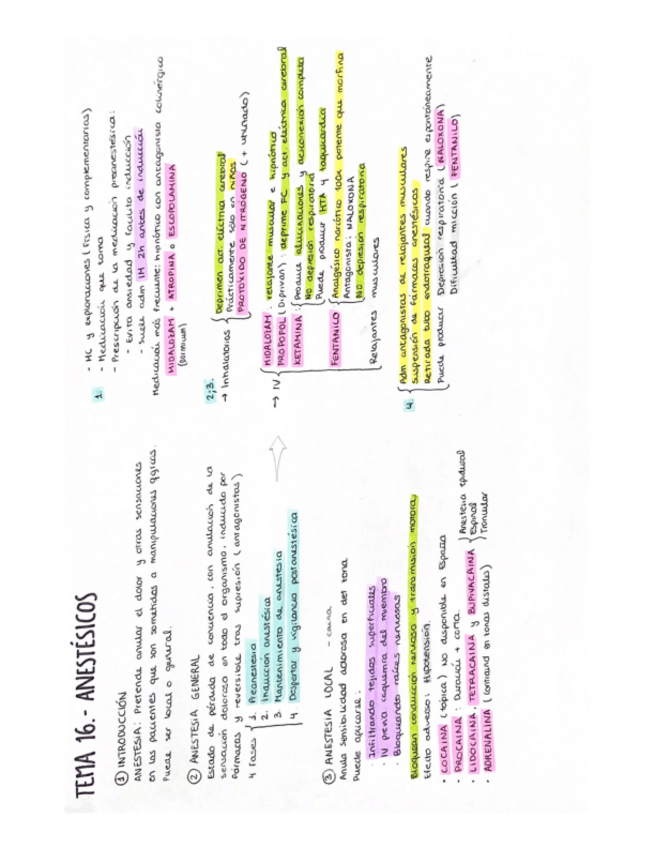 TEMA 16.- ANESTÉSICOS
① INTRODUCCIÓN
ANESTESIA: Pretende anular el dolor y otras sensaciones
en los pacientes que son sometidos a manipulaciones qgicas.
Puede ser local o general.
② ANESTESIA GENERAL
Estado de pérdida de conciencia, con anulación de la
sensación dolorosa en todo el organismo, inducido por
fármacos y reversible tras supresión (antagonistas)
4 fases
1. Preanestesia
2. Inducción anestésica
3. Mantenimiento de anestesia
4. Despertar y vigilancia postanestésica
③ ANESTESIA LOCAL - caína
Anula sensibilidad dolorosa en det zona
Puede aplicarse:
· Infiltrando tejidos superficiales
· IV previo isquemia del miembro
· Bloqueando raíces nerviosas
Bloquean conducción nerviosa y transmisión motora
Efecto adverso: Hipotensión.
· COCAINA (tópica) NO disponible en España
· PROCAINA: Duración + corta.
· LIDOCAINA, TETRACAINA y BUPIVACAINA
Anestesia epidural
Espinal
Troncular
· ADRENALINA (contraind en zonas distales)
1.
- HC y exploraciones (física y complementarias)
- Medicación que toma
- Prescripción de la medicación preanestésica:
- Evita ansiedad y facilita inducción
- Suele adm IM 2h antes de inducción
Medicación más frecuente: hipnótico con antagonista colinérgico
MIDALOZAM + ATROPINA o ESCOPOLAMINA
(Dormicum)
2,3.
→ Inhalatorias
Deprimen act. eléctrica cerebral
Prácticamente sólo en niños
PROTOXIDO DE NITRÓGENO (+ utilizado)
→ IV
MIDALOZAM: relajante muscular e hipnótico
PROPOFOL (Diprivan): deprime FC y act eléctrica cerebral
KETAMINA:
Produce alucinaciones y desconexión completa
NO depresión respiratoria
Puede producir HTA y taquicardia
FENTANILO
Analgésico narcótico 100x potente que morfina
Antagonista: NALOXONA
NO depresión respiratoria
Relajantes musculares
4.
Adm antagonistas de relajantes musculares
Suspensión de fármacos anestésicos
Retirada tubo endotraqueal cuando respire espontáneamente
Puede producir
Depresión respiratoria (NALOXONA)
Dificultad micción (FENTANILO)